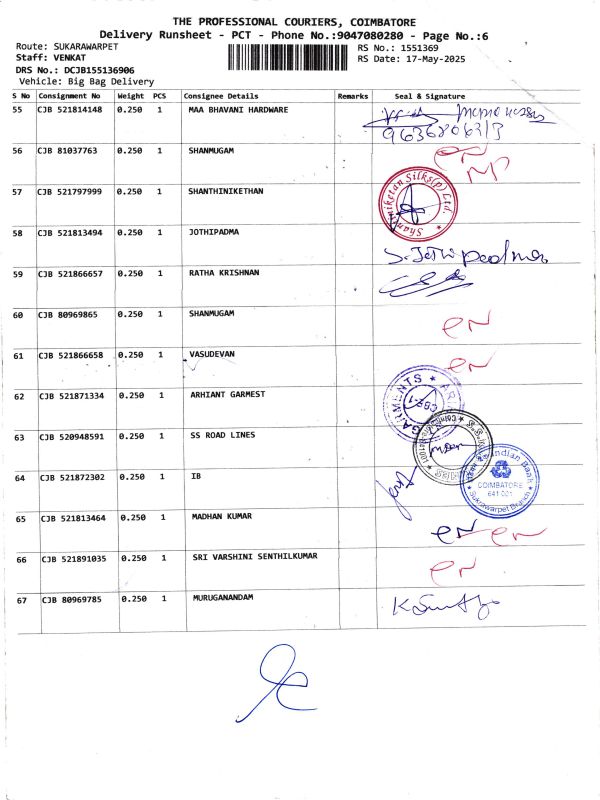 THE PROFESSIONAL COURIERS, COIMBATORE
Delivery Runsheet - PCT - Phone No.:9047080280 - Page No.:6
Route: SUKARAWARPET
RS No.: 1551369
Staff: VENKAT
RS Date: 17-May-2025
DRS No.: DCJB155136906
Vehicle: Big Bag Delivery
S No Consignment No Weight PCS Consignee Details Remarks Seal & Signature
55 CJB 521814148 0.250 1 MAA BHAVANI HARDWARE
9636806213
56 CJB 81037763 0.250 1 SHANMUGAM
57 CJB 521797999 0.250 1 SHANTHINIKETHAN
Shanthiniketan Silks(p) Ltd.
58 CJB 521813494 0.250 1 JOTHIPADMA
S. Jothi Padma
59 CJB 521866657 0.250 1 RATHA KRISHNAN
60 CJB 80969865 0.250 1 SHANMUGAM
61 CJB 521866658 0.250 1 VASUDEVAN
62 CJB 521871334 0.250 1 ARHIANT GARMEST
GARMENTS
CBE-1
63 CJB 520948591 0.250 1 SS ROAD LINES
64 CJB 521872302 0.250 1 IB
Indian Bank
COIMBATORE
641 001
Sukrawarpet Branch
65 CJB 521813464 0.250 1 MADHAN KUMAR
66 CJB 521891035 0.250 1 SRI VARSHINI SENTHILKUMAR
67 CJB 80969785 0.250 1 MURUGANANDAM